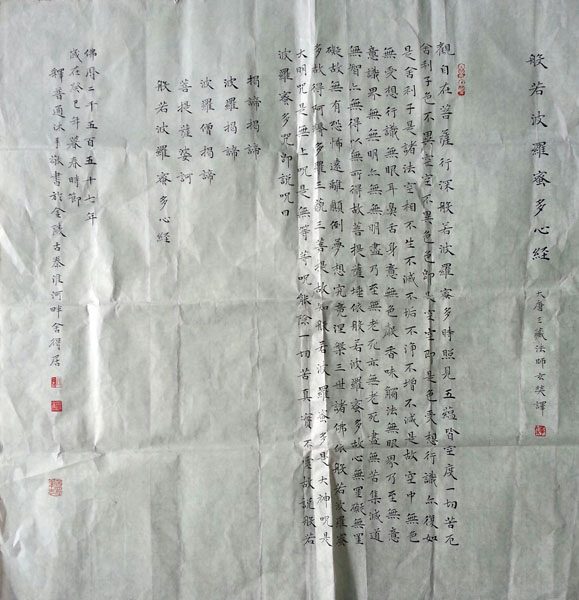 般若波羅蜜多心經
大唐三藏法師玄奘譯
觀自在菩薩行深般若波羅蜜多時照見五蘊皆空度一切苦厄
舍利子色不異空空不異色色即是空空即是色受想行識亦復如
是舍利子是諸法空相不生不滅不垢不淨不增不減是故空中無色
無受想行識無眼耳鼻舌身意無色聲香味觸法無眼界乃至無意
意識界無無明亦無無明盡乃至無老死亦無老死盡無苦集滅道
無智亦無得以無所得故菩提薩埵依般若波羅蜜多故心無罣礙無罣
礙故無有恐怖遠離顛倒夢想究竟涅槃三世諸佛依般若波羅蜜
多故得阿耨多羅三藐三菩提故知般若波羅蜜多是大神咒是
大明咒是無上咒是無等等咒能除一切苦真實不虛故說般若
波羅蜜多咒即說咒曰
揭諦揭諦
波羅揭諦
波羅僧揭諦
菩提薩婆訶
般若波羅蜜多心經
佛曆二千五百五十七年
歲在癸巳年暮春時節
釋普通沐手敬書於金陵古秦淮河畔舍得居